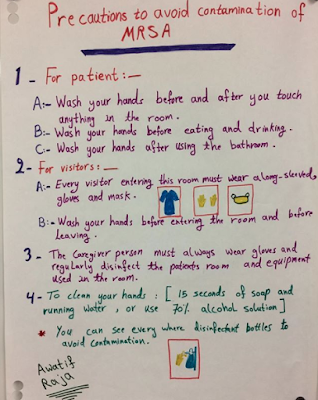 Precautions to avoid contamination of
MRSA
1 - For patient :-
A:- Wash your hands before and after you touch
anything in the room.
B:- Wash your hands before eating and drinking.
C:- Wash your hands after using the bathroom.
2- For visitors :-
A:- Every visitor entering this room must wear along-sleeved,
gloves and mask.
B:- Wash your hands before entering the room and before
leaving.
3 - The Caregiver person must always wear gloves and
regularly disinfect the patients room and equipment
used in the room.
4 - To clean your hands : [ 15 seconds of soap and
running water, or use 70% alcohol solution ]
* You can see every where disinfectant bottles to
avoid contamination.
Awatif
Raja